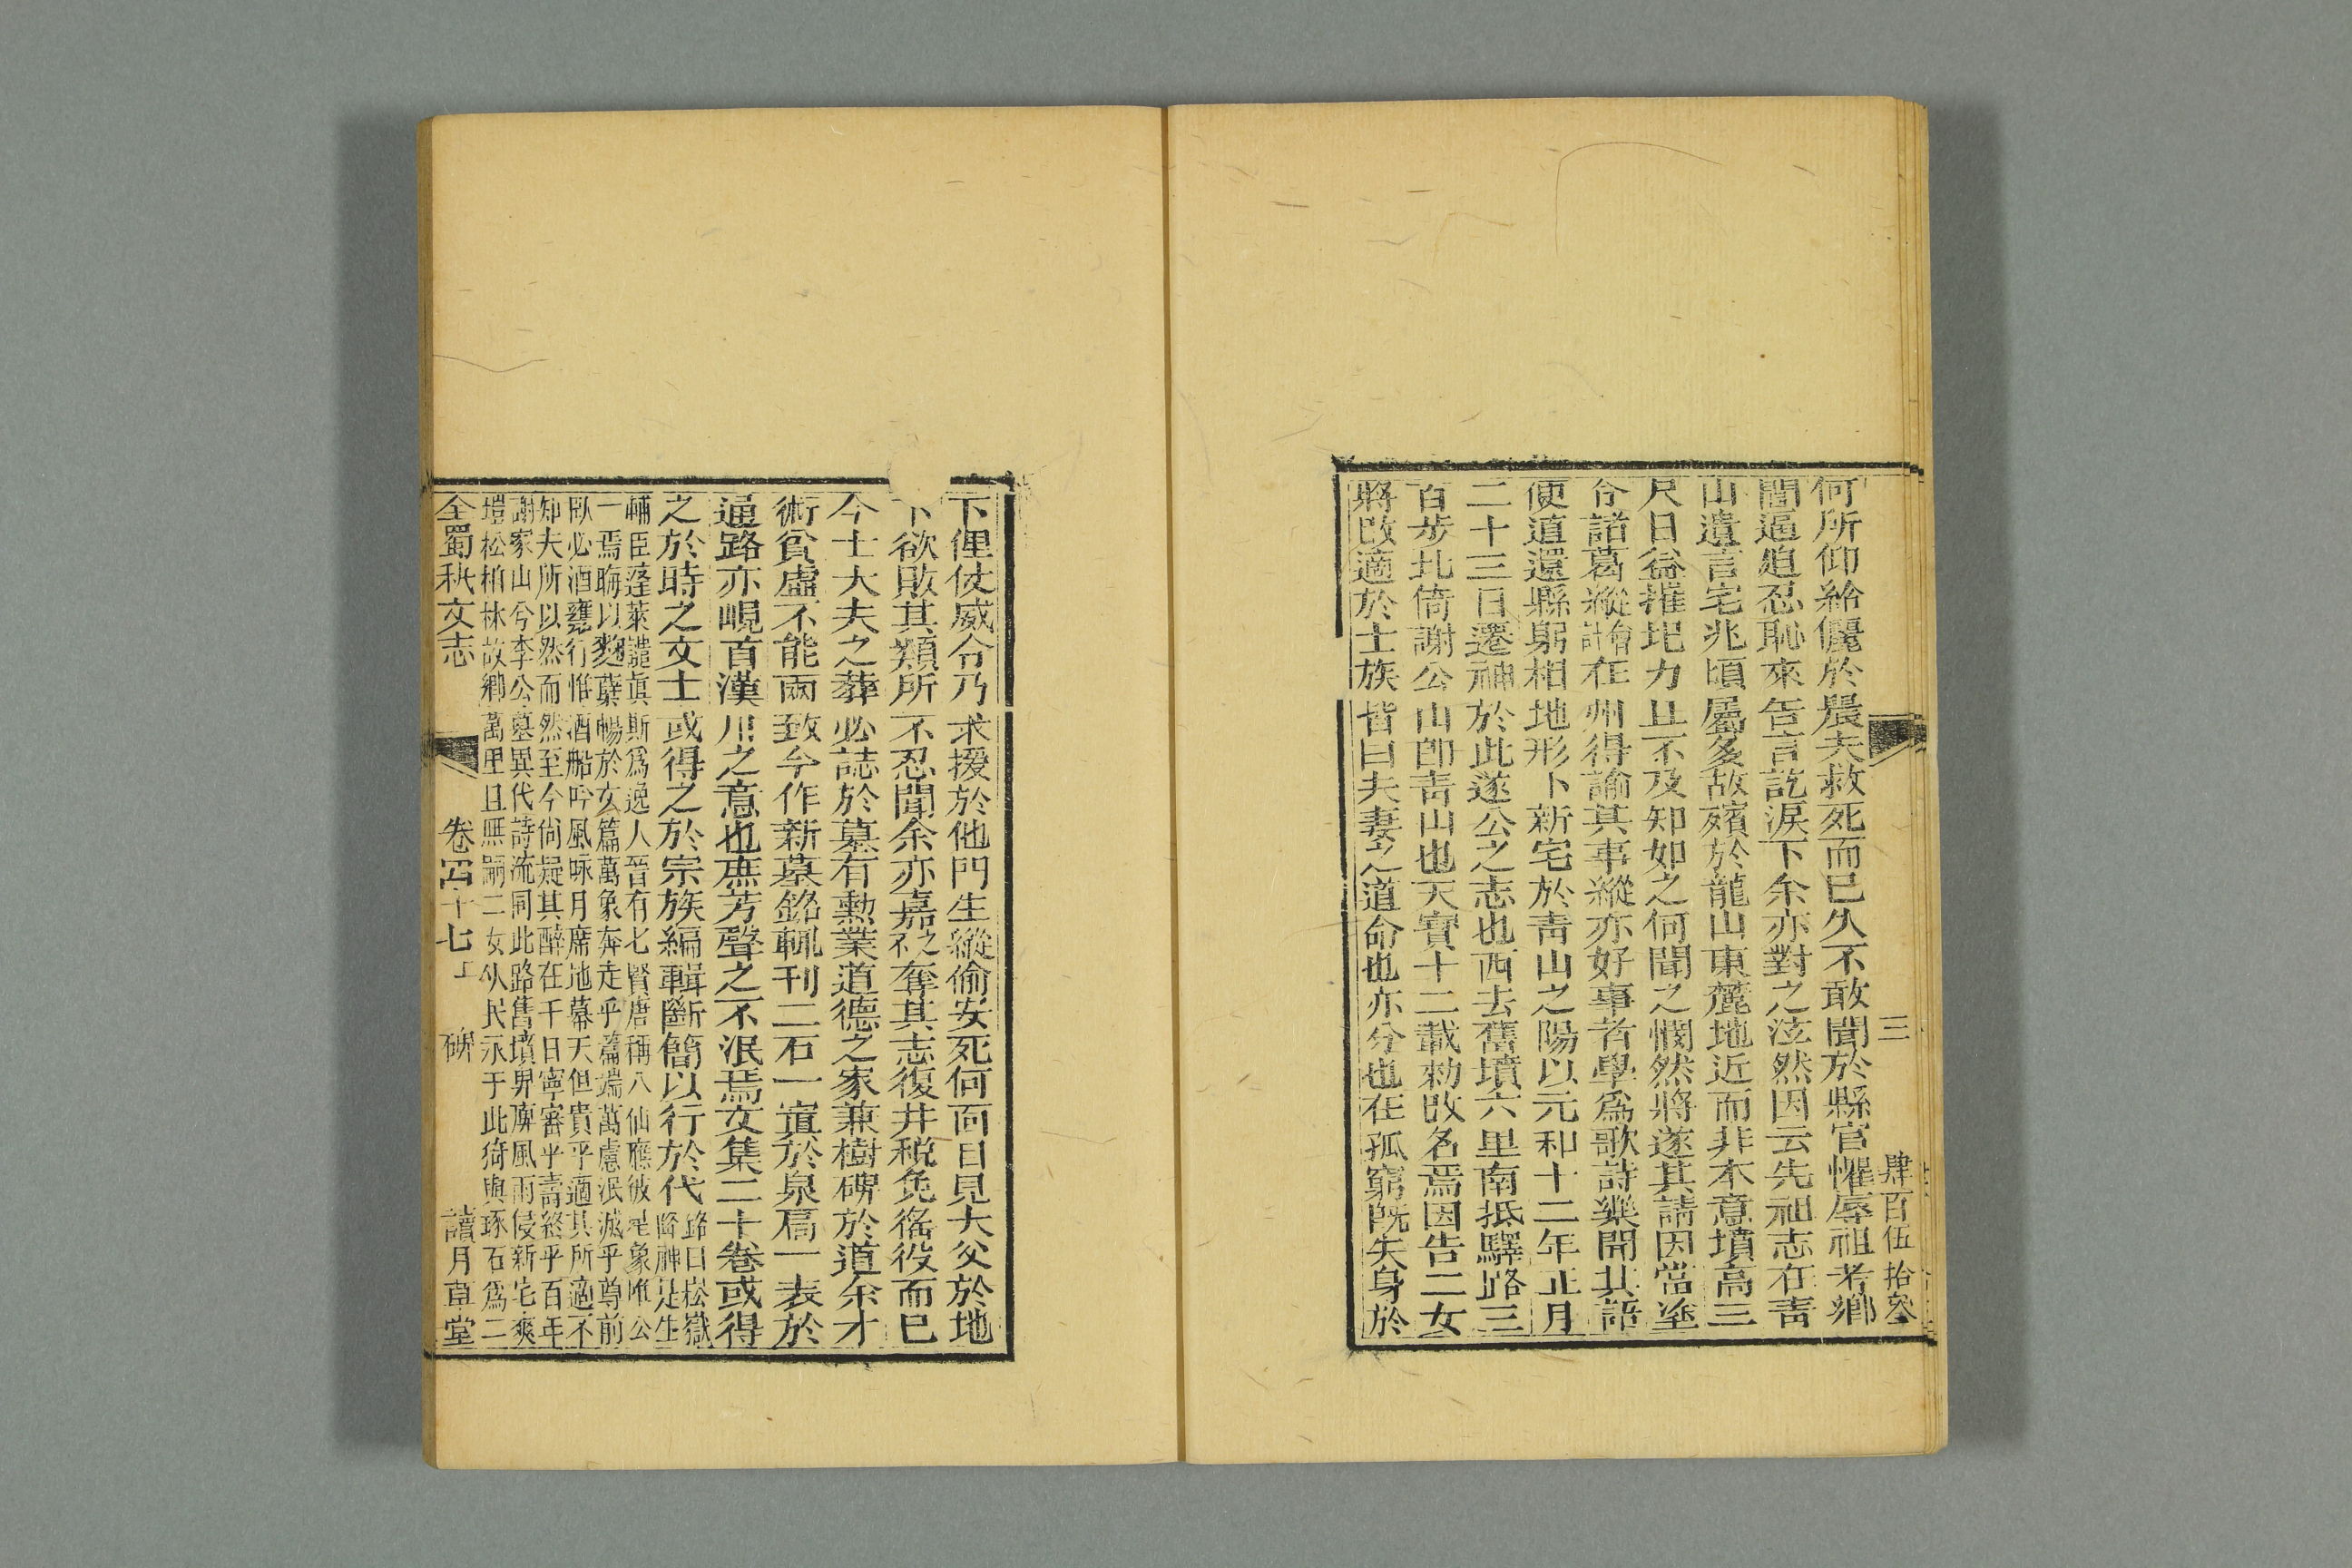 三 肆百伍拾叄
何所仰給儷於農夫救死而已久不敢聞於縣官懼辱祖考鄉
閭逼迫忍恥來告言訖淚下余亦對之泫然因云先祖志在青
山遺言宅兆頃屬多故殯於龍山東麓地近而非本意墳高三
尺日益摧圯力且不及知如之何聞之憫然將遂其請因當塗
令諸葛縱會計在州得諭其事縱亦好事者學爲歌詩樂聞其語
便道還縣躬相地形卜新宅於青山之陽以元和十二年正月
二十三日遷神於此遂公之志也西去舊墳六里南抵驛路三
百步北倚謝公山卽青山也天寶十二載敕改名焉因告二女
將改適於士族皆曰夫妻之道命也亦分也在孤窮既失身於
下俚仗威令乃求援於他門生縱偷安死何面目見大父於地
下欲敗其類所不忍聞余亦嘉之不奪其志復井稅免徭役而已
今士大夫之葬必誌於墓有勳業道德之家兼樹碑於道余才
術貧虛不能兩致今作新墓銘輒刊二石一寘於泉扃一表於
通路亦峴首漢川之意也庶芳聲之不泯焉文集二十卷或得
之於時之文士或得之於宗族編輯斷簡以行於代 銘曰崧嶽降神是生
輔臣蓬萊譴眞斯爲逸人晉有七賢唐稱八仙應彼星象唯公
一焉晦以麴蘖暢於文篇萬象奔走乎筆端萬慮泯滅乎尊前
臥必酒甕行惟酒船吟風咏月席地幕天但貴乎適其所適不
知夫所以然而然至今尙疑其醉在千日寧審乎壽終乎百年
謝家山兮李公墓異代詩流同此路舊墳卑庳風雨侵新宅爽
塏松柏林故鄉萬里且無嗣二女從民永于此猗輿琢石爲二
全蜀秇文志 卷四十七上 碑 讀月草堂